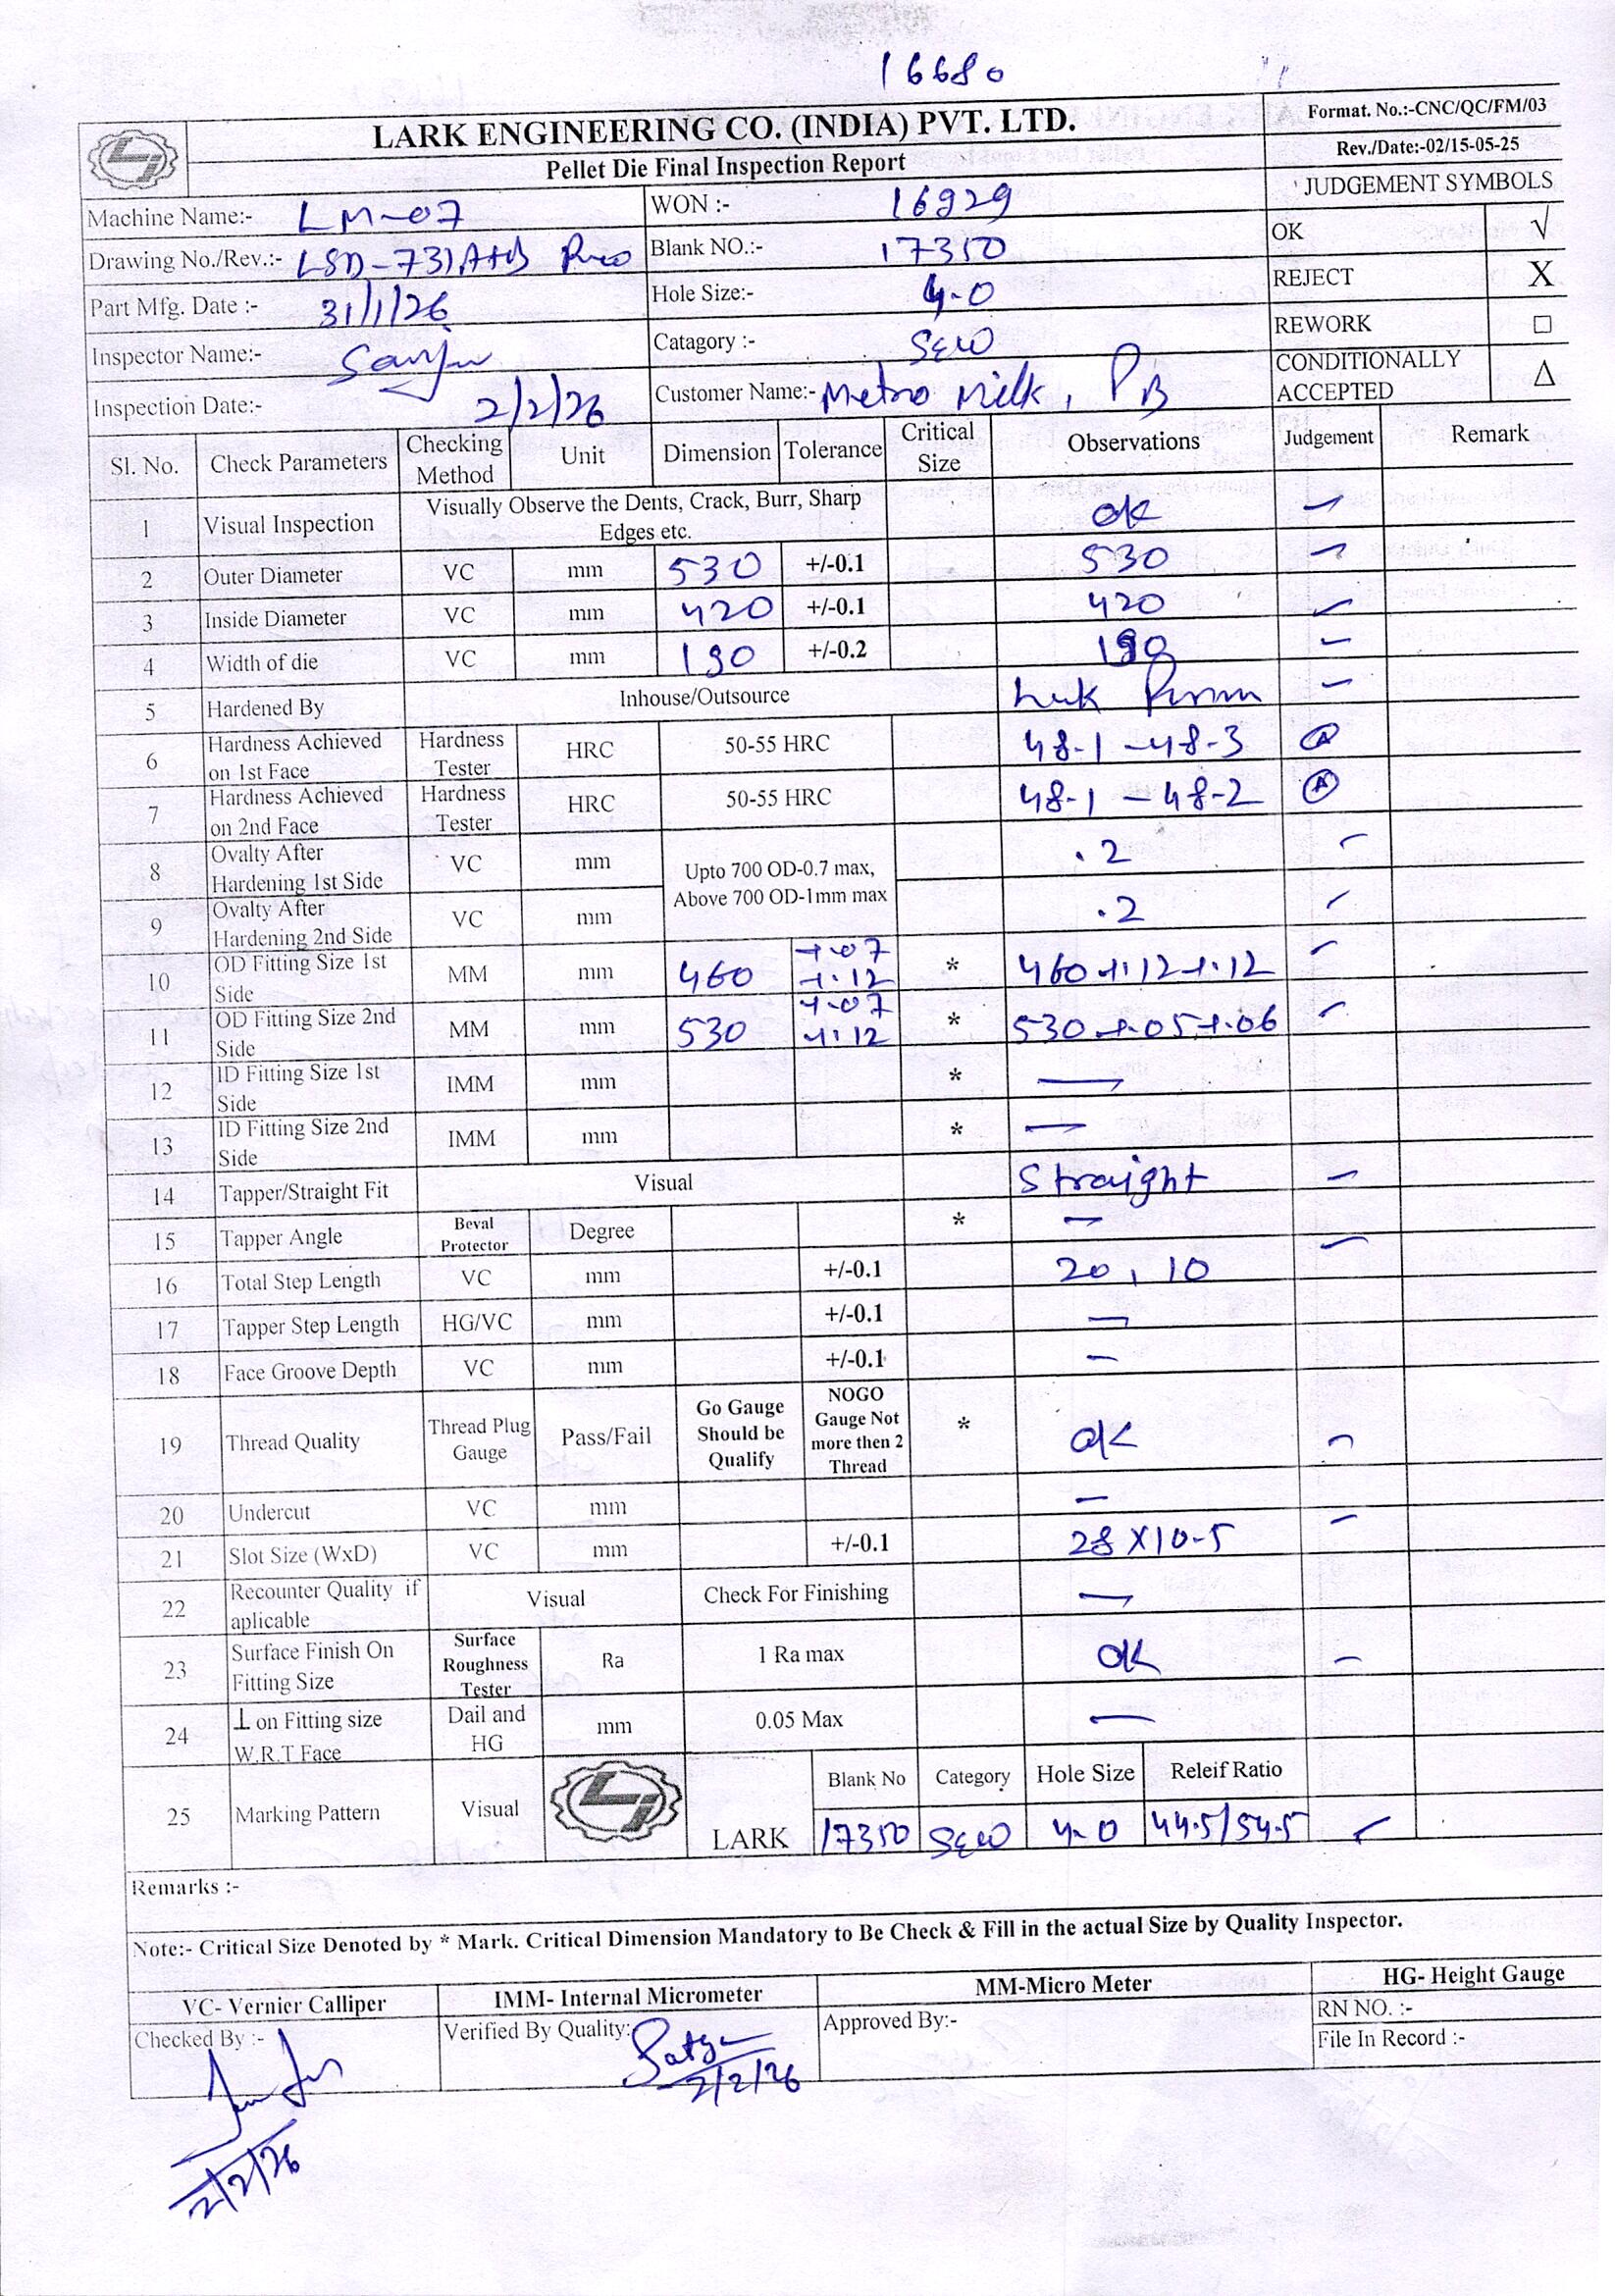 16680
LARK ENGINEERING CO. (INDIA) PVT. LTD.
Pellet Die Final Inspection Report
Format. No.:-CNC/QC/FM/03
Rev./Date:-02/15-05-25
Machine Name:- LM-07 WON :- 16929 JUDGEMENT SYMBOLS
Drawing No./Rev.:- LSD-731A+B Blank NO.:- 17350 OK √
Part Mfg. Date :- 31/1/26 Hole Size:- 4.0 REJECT X
Inspector Name:- Sanju Catagory :- REWORK □
Inspection Date:- 2/2/26 Customer Name:- Metro Milk, PB CONDITIONALLY ACCEPTED Δ
Sl. No. Check Parameters Checking Method Unit Dimension Tolerance Critical Size Observations Judgement Remark
1 Visual Inspection Visually Observe the Dents, Crack, Burr, Sharp Edges etc. ok
2 Outer Diameter VC mm 530 +/-0.1 530
3 Inside Diameter VC mm 420 +/-0.1 420
4 Width of die VC mm 190 +/-0.2 190
5 Hardened By Inhouse/Outsource
6 Hardness Achieved on 1st Face Hardness Tester HRC 50-55 HRC 48-1 - 48-3
7 Hardness Achieved on 2nd Face Hardness Tester HRC 50-55 HRC 48-1 - 48-2
8 Ovalty After Hardening 1st Side VC mm Upto 700 OD-0.7 max, Above 700 OD-1mm max .2
9 Ovalty After Hardening 2nd Side VC mm .2
10 OD Fitting Size 1st Side MM mm 460 +.07 +.12 * 460 +.12 +.12
11 OD Fitting Size 2nd Side MM mm 530 +.07 +.12 * 530 +.05 +.06
12 ID Fitting Size 1st Side IMM mm * —
13 ID Fitting Size 2nd Side IMM mm * —
14 Tapper/Straight Fit Visual Straight
15 Tapper Angle Beval Protector Degree * —
16 Total Step Length VC mm +/-0.1 20, 10
17 Tapper Step Length HG/VC mm +/-0.1 —
18 Face Groove Depth VC mm +/-0.1 —
19 Thread Quality Thread Plug Gauge Pass/Fail Go Gauge Should be Qualify NOGO Gauge Not more then 2 Thread * ok
20 Undercut VC mm —
21 Slot Size (WxD) VC mm +/-0.1 28 X 10-5
22 Recounter Quality if aplicable Visual Check For Finishing —
23 Surface Finish On Fitting Size Surface Roughness Tester Ra 1 Ra max OK
24 ⊥ on Fitting size W.R.T Face Dail and HG mm 0.05 Max —
25 Marking Pattern Visual LARK Blank No Category Hole Size Releif Ratio
17350 4.0 44.5/54.5
Remarks :-
Note:- Critical Size Denoted by * Mark. Critical Dimension Mandatory to Be Check & Fill in the actual Size by Quality Inspector.
VC- Vernier Calliper IMM- Internal Micrometer MM-Micro Meter HG- Height Gauge
Checked By :- Verified By Quality:- Approved By:- RN NO. :-
File In Record :-
2/2/26
2/2/26